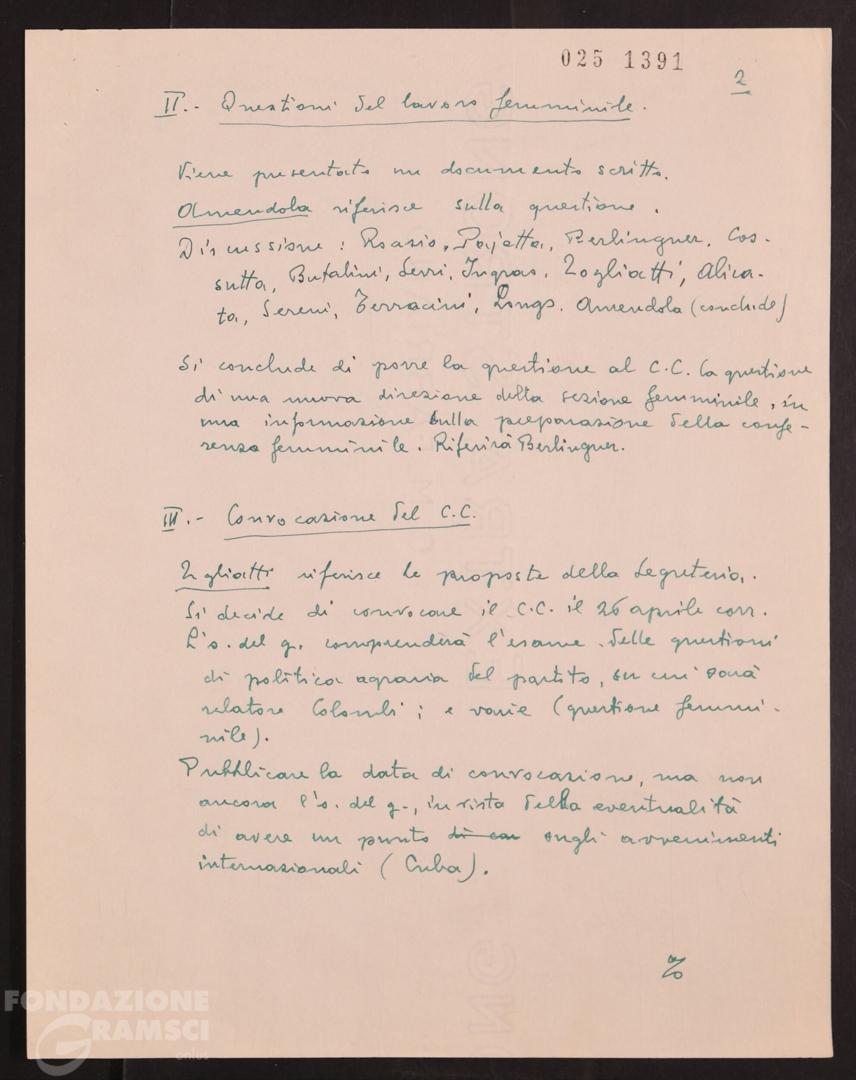 025 1391
2
II.- Questioni del lavoro femminile.
Viene presentato un documento scritto.
Amendola riferisce sulla questione.
Discussione: Roasio, Pajetta, Berlinguer, Cos-
sutta, Bufalini, Serri, Ingrao, Togliatti, Alica-
ta, Sereni, Terracini, Longo. Amendola (conclude)
Si conclude di porre la questione al C.C. la questione
di una nuova direzione della sezione femminile, in
una informazione sulla preparazione della confe-
renza femminile. Riferirà Berlinguer.
III.- Convocazione del C.C.
Togliatti riferisce le proposte della Segreteria.
Si decide di convocare il C.C. il 26 aprile corr.
L'o. del g. comprenderà l'esame delle questioni
di politica agraria del partito, su cui sarà
relatore Colombi; e varie (questione femmi-
nile).
Pubblicare la data di convocazione, ma non
ancora l'o. del g., in vista della eventualità
di avere un punto di con sugli avvenimenti
internazionali (Cuba).
%
FONDAZIONE
GRAMSCI
onlus